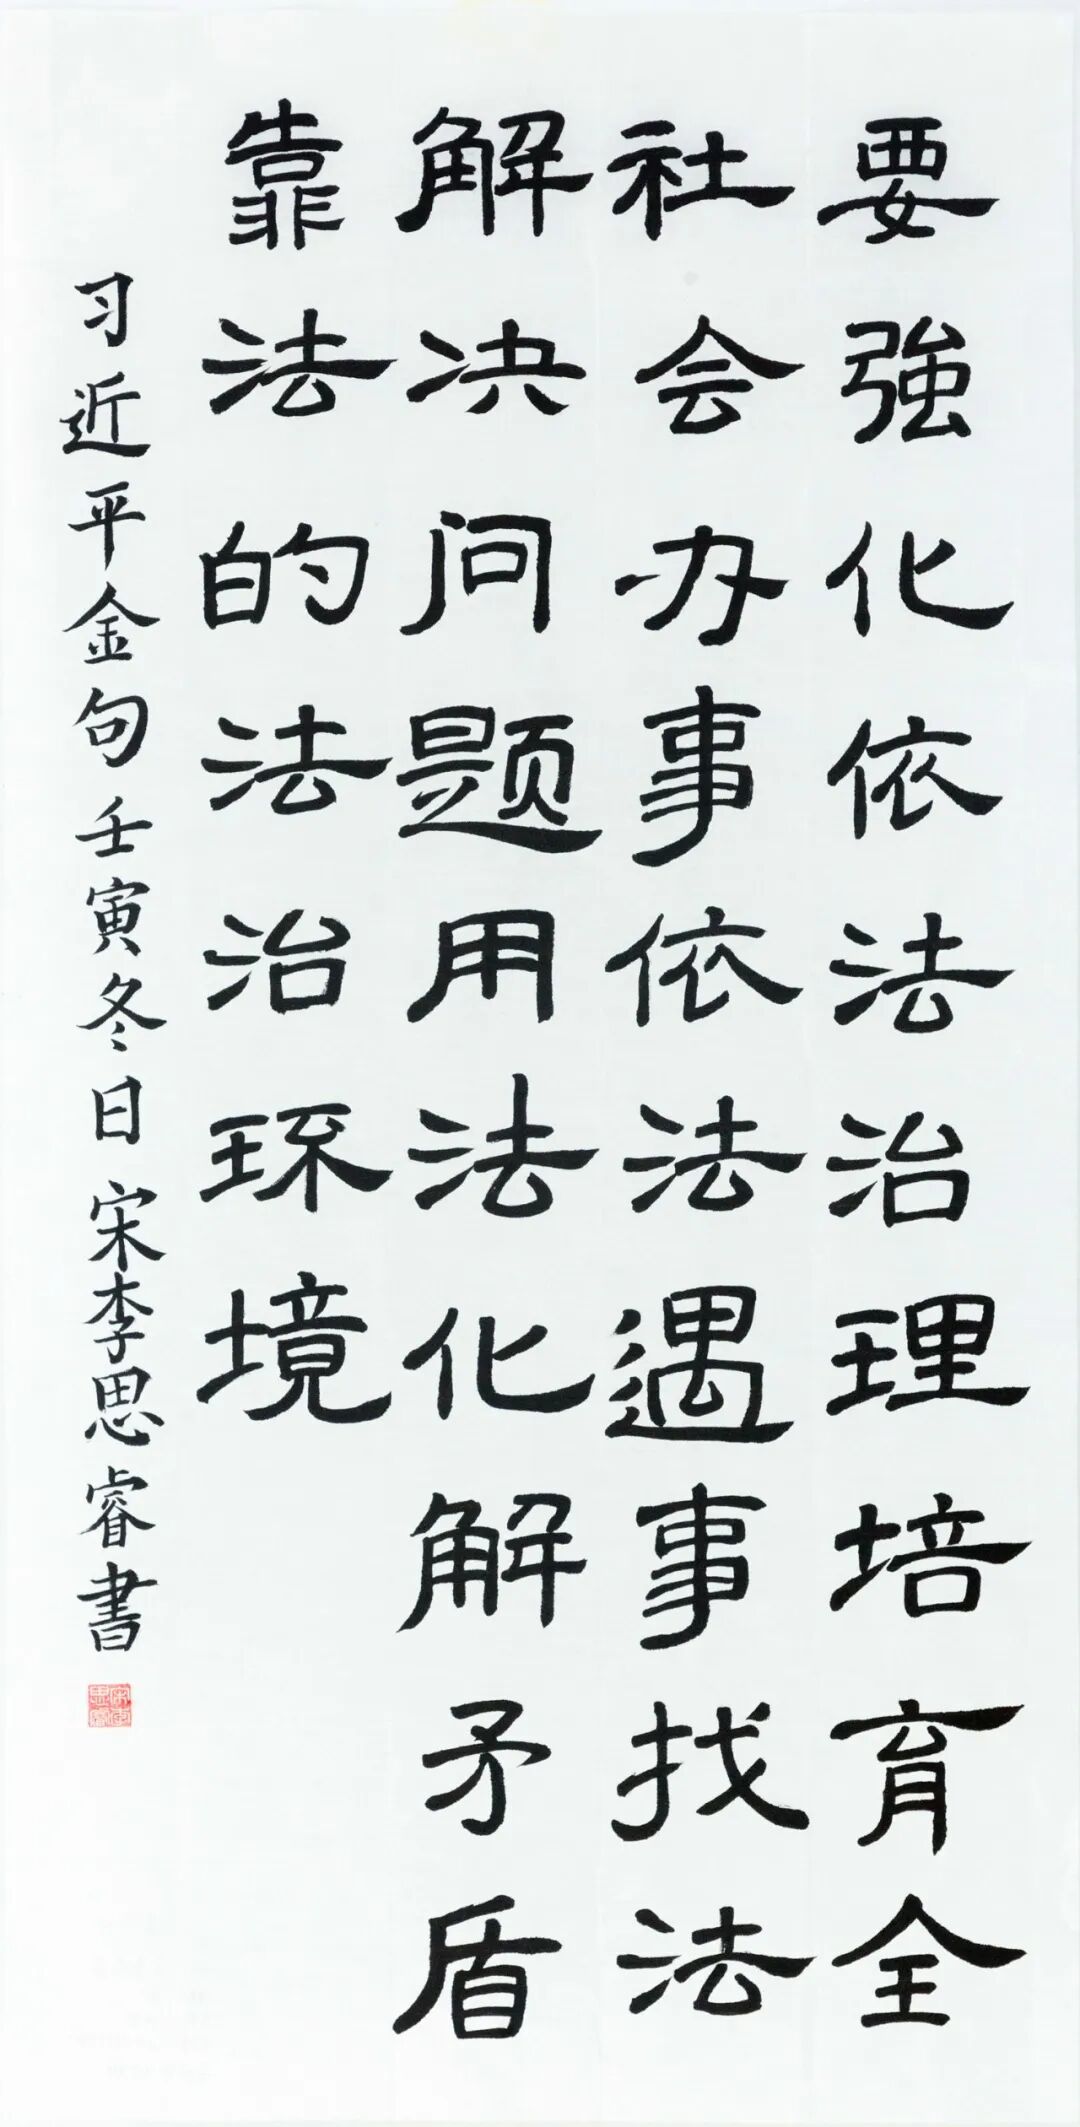 要強化依法治理培育全
社会办事依法遇事找法
解决问题用法化解矛盾
靠法的法治环境
习近平金句 壬寅冬日 宋李思睿書